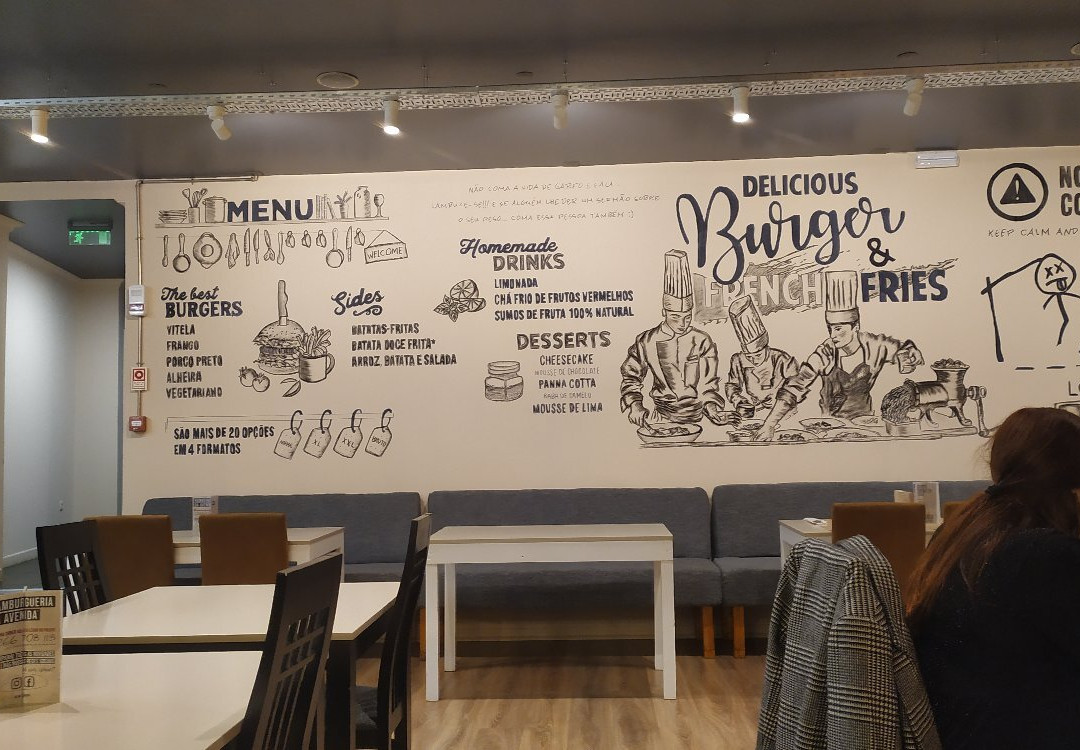 MENU
WELCOME
The best
BURGERS
VITELA
FRANGO
PORCO PRETO
ALHEIRA
VEGETARIANO
SÃO MAIS DE 20 OPÇÕES
EM 4 FORMATOS
XL
XXL
Sides
BATATAS-FRITAS
BATATA DOCE FRITA*
ARROZ, BATATA E SALADA
NÃO COMA A VIDA DE GARFO E FACA
LAMBUZE-SE!!! E SE ALGUÉM LHE DER UM SERMÃO SOBRE
O SEU PESO... COMA ESSA PESSOA TAMBÉM :)
Homemade
DRINKS
LIMONADA
CHÁ FRIO DE FRUTOS VERMELHOS
SUMOS DE FRUTA 100% NATURAL
DESSERTS
CHEESECAKE
MOUSSE DE CHOCOLATE
PANNA COTTA
BABA DE CAMELO
MOUSSE DE LIMA
DELICIOUS
Burger
&
FRENCH FRIES
NO
CO
KEEP CALM AND
LO
AMBURGUERIA
AVENIDA